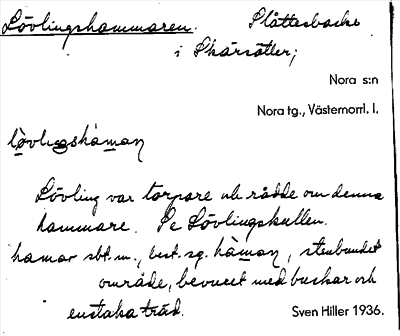 Lövlingshammaren. Slåttesbacke
i Skärsätter;
Nora s:n
Nora tg., Västernorrl. l.
lövlingshàman
Lövling var torpare och rådde om denna
hammare. Se Lövlingskullen.
hamar sbt. m., best. sg. hàman, stenbundet
område, bevuxet med buskar och
enstaka träd.
Sven Hiller 1936.